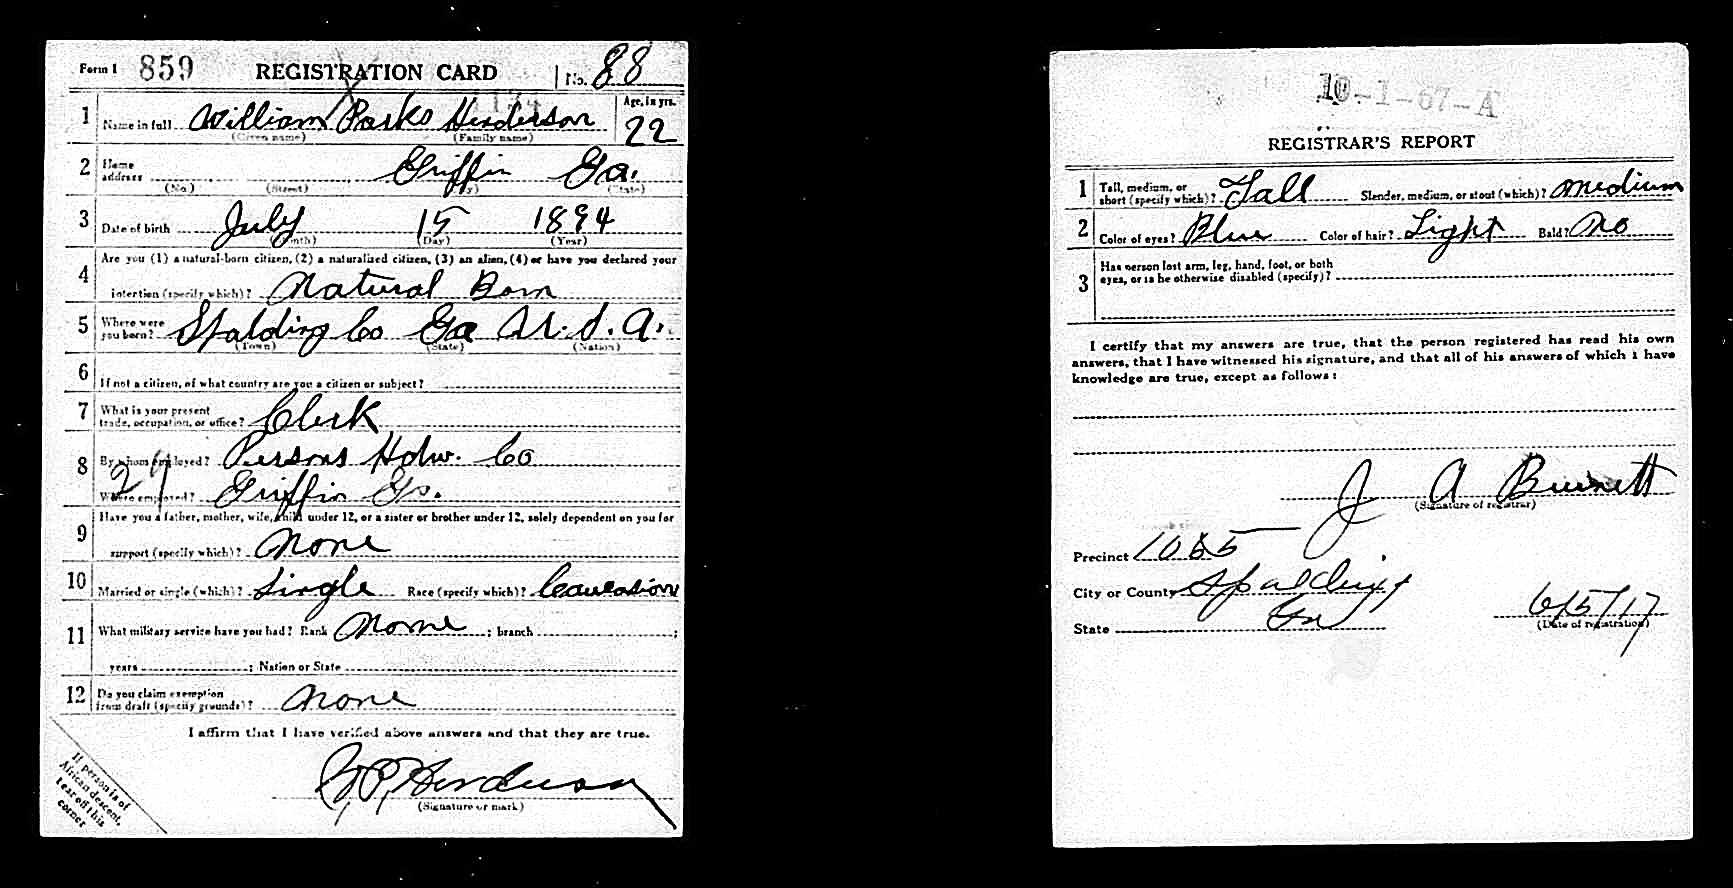 Form 1 859 REGISTRATION CARD No. 88
1 Name in full William Parks Henderson Age, in yrs. 22
(Given name) (Family name)
2 Home address Griffin Ga.
(No.) (Street) (City) (State)
3 Date of birth July 15 1894
(Month) (Day) (Year)
Are you (1) a natural-born citizen, (2) a naturalized citizen, (3) an alien, (4) or have you declared your
4 intention (specify which)? Natural Born
5 Where were you born? Spalding Co Ga U.S.A.
(Town) (State) (Nation)
6 If not a citizen, of what country are you a citizen or subject?
7 What is your present trade, occupation, or office? Clerk
8 By whom employed? Persons Hdw. Co
29
Where employed? Griffin Ga.
Have you a father, mother, wife, child under 12, or a sister or brother under 12, solely dependent on you for
9 support (specify which)? None
10 Married or single (which)? Single Race (specify which)? Caucasion
11 What military service have you had? Rank None ; branch ;
years ; Nation or State
12 Do you claim exemption from draft (specify grounds)? None
I affirm that I have verified above answers and that they are true.
W. P. Henderson
(Signature or mark)
If person is of
African descent,
tear off this
corner
10-1-67-A
REGISTRAR'S REPORT
1 Tall, medium, or short (specify which)? Tall Slender, medium, or stout (which)? Medium
2 Color of eyes? Blue Color of hair? Light Bald? No
3 Has person lost arm, leg, hand, foot, or both
eyes, or is he otherwise disabled (specify)?
I certify that my answers are true, that the person registered has read his own
answers, that I have witnessed his signature, and that all of his answers of which I have
knowledge are true, except as follows:
J A
(Signature of registrar)
Precinct
City or County Spalding
State Ga 6/5/17
(Date of registration)